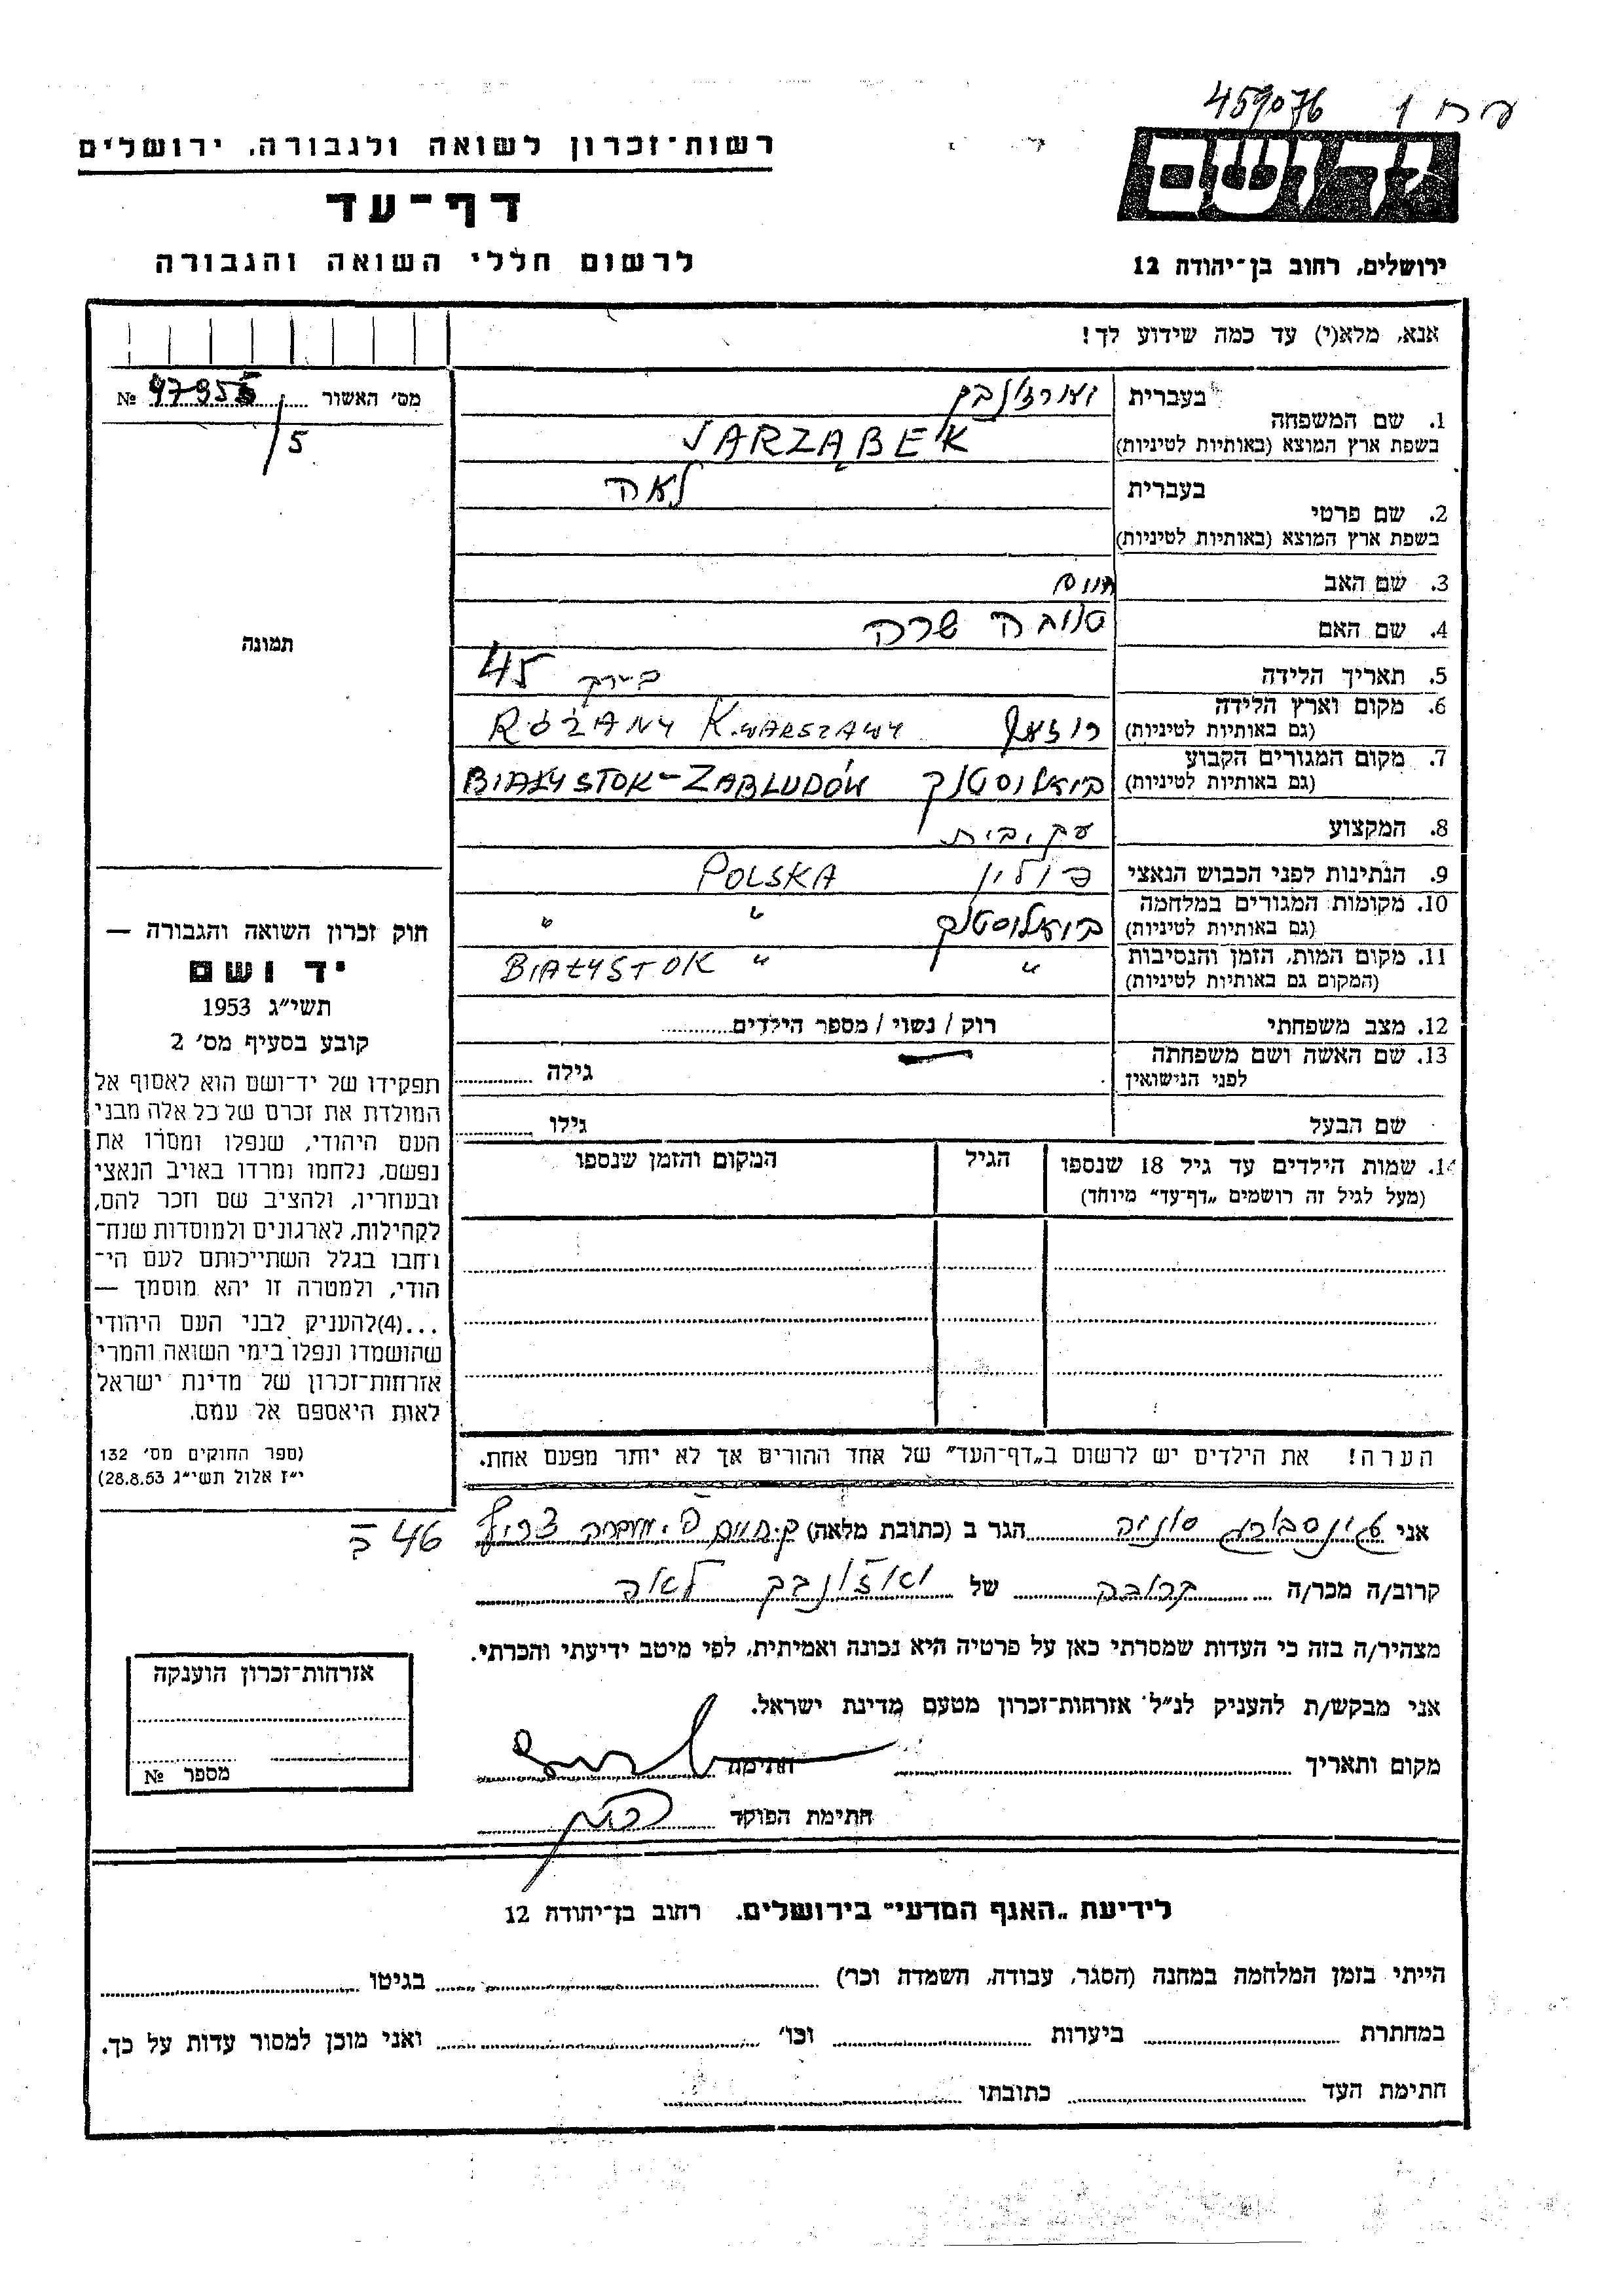 459076 1
רשות־זכרון לשואה ולגבורה, ירושלים
דף־עד
לרשום חללי השואה והגבורה
ידושם
ירושלים, רחוב בן־יהודה 12
אנא, מלא(י) עד כמה שידוע לך!
מס׳ האשור 47955 №
/5
תמונה
1. שם המשפחה
בעברית
בשפת ארץ המוצא (באותיות לטיניות) JARZĄBEK
2. שם פרטי
בעברית לאה
בשפת ארץ המוצא (באותיות לטיניות)
3. שם האב
4. שם האם טובה שרה
5. תאריך הלידה בערך 45
6. מקום וארץ הלידה
(גם באותיות לטיניות) RÓŻANY K.WARSZAWY
7. מקום המגורים הקבוע
(גם באותיות לטיניות) ביאליסטוק BIAŁYSTOK–ZABŁUDÓW
8. המקצוע עק. בית
9. הנתינות לפני הכבוש הנאצי פולין POLSKA
10. מקומות המגורים במלחמה
(גם באותיות לטיניות) ביאליסטוק " "
11. מקום המות, הזמן והנסיבות
(המקום גם באותיות לטיניות) " " BIAŁYSTOK
12. מצב משפחתי רוק / נשוי / מספר הילדים
13. שם האשה ושם משפחתה
לפני הנישואין גילה
שם הבעל גילו
14. שמות הילדים עד גיל 18 שנספו הגיל המקום והזמן שנספו
(מעל לגיל זה רושמים „דף־עד״ מיוחד)
הערה! את הילדים יש לרשום ב„דף־העד״ של אחד ההורים אך לא יותר מפעם אחת.
חוק זכרון השואה והגבורה —
יד ושם
תשי״ג 1953
קובע בסעיף מס׳ 2
תפקידו של יד־ושם הוא לאסוף אל
המולדת את זכרם של כל אלה מבני
העם היהודי, שנפלו ומסרו את
נפשם, נלחמו ומרדו באויב הנאצי
ובעוזריו, ולהציב שם וזכר להם,
לקהילות, לארגונים ולמוסדות שנח־
רחבו בגלל השתייכותם לעם הי־
הודי, ולמטרה זו יהא מוסמך —
...(4)להעניק לבני העם היהודי
שהושמדו ונפלו בימי השואה והמרי
אזרחות־זכרון של מדינת ישראל
לאות היאספם אל עמם.
(ספר החוקים מס׳ 132
י״ז אלול תשי״ג 28.8.53)
אני סוניה הגר ב (כתובת מלאה) ק. חיים
46
קרוב/ה מכר/ה קרובה של לאה
מצהיר/ה בזה כי העדות שמסרתי כאן על פרטיה היא נכונה ואמיתית, לפי מיטב ידיעתי והכרתי.
אני מבקש/ת להעניק לנ״ל אזרחות־זכרון מטעם מדינת ישראל.
מקום ותאריך חתימת
חתימת הפוקד
אזרחות־זכרון הוענקה
מספר №
לידיעת „האגף המדעי״ בירושלים. רחוב בן־יהודה 12
הייתי בזמן המלחמה במחנה (הסגר, עבודה, השמדה וכר׳) בגיטו
במחתרת ביערות וכו׳ ואני מוכן למסור עדות על כך.
חתימת העד כתובתו